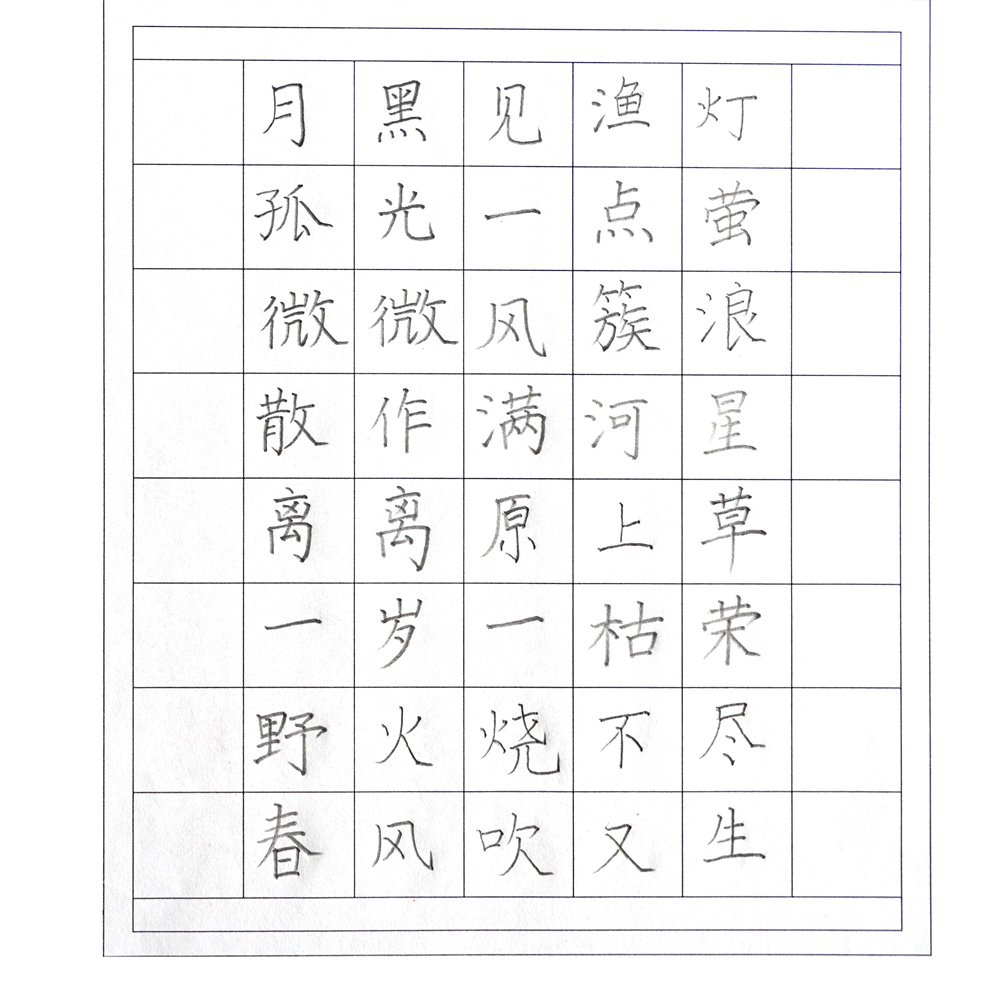 月黑见渔灯
孤光一点萤
微微风簇浪
散作满河星
离离原上草
一岁一枯荣
野火烧不尽
春风吹又生